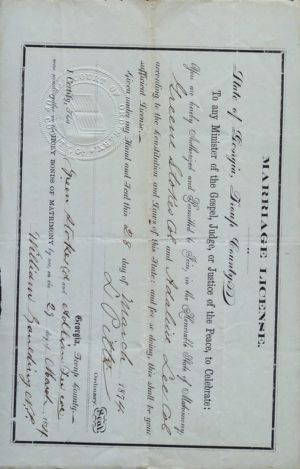 MARRIAGE LICENSE.
State of Georgia, Troup County
To any Minister of the Gospel, Judge, or Justice of the Peace, to Celebrate:
You are hereby Authorized and Permitted to Join, in the Honorable State of Matrimony,
Greene Stokes Col and Lee Col
according to the Constitution and Laws of this State: and for so doing, this shall be your
sufficient License.
Given under my Hand and Seal this 28 day of March 1874
Ordinary. Seal
Georgia, Troup County.
I Certify, That Green Stokes and
were joined in the HOLY BONDS OF MATRIMONY by me, on the 29 day of March 1874
William